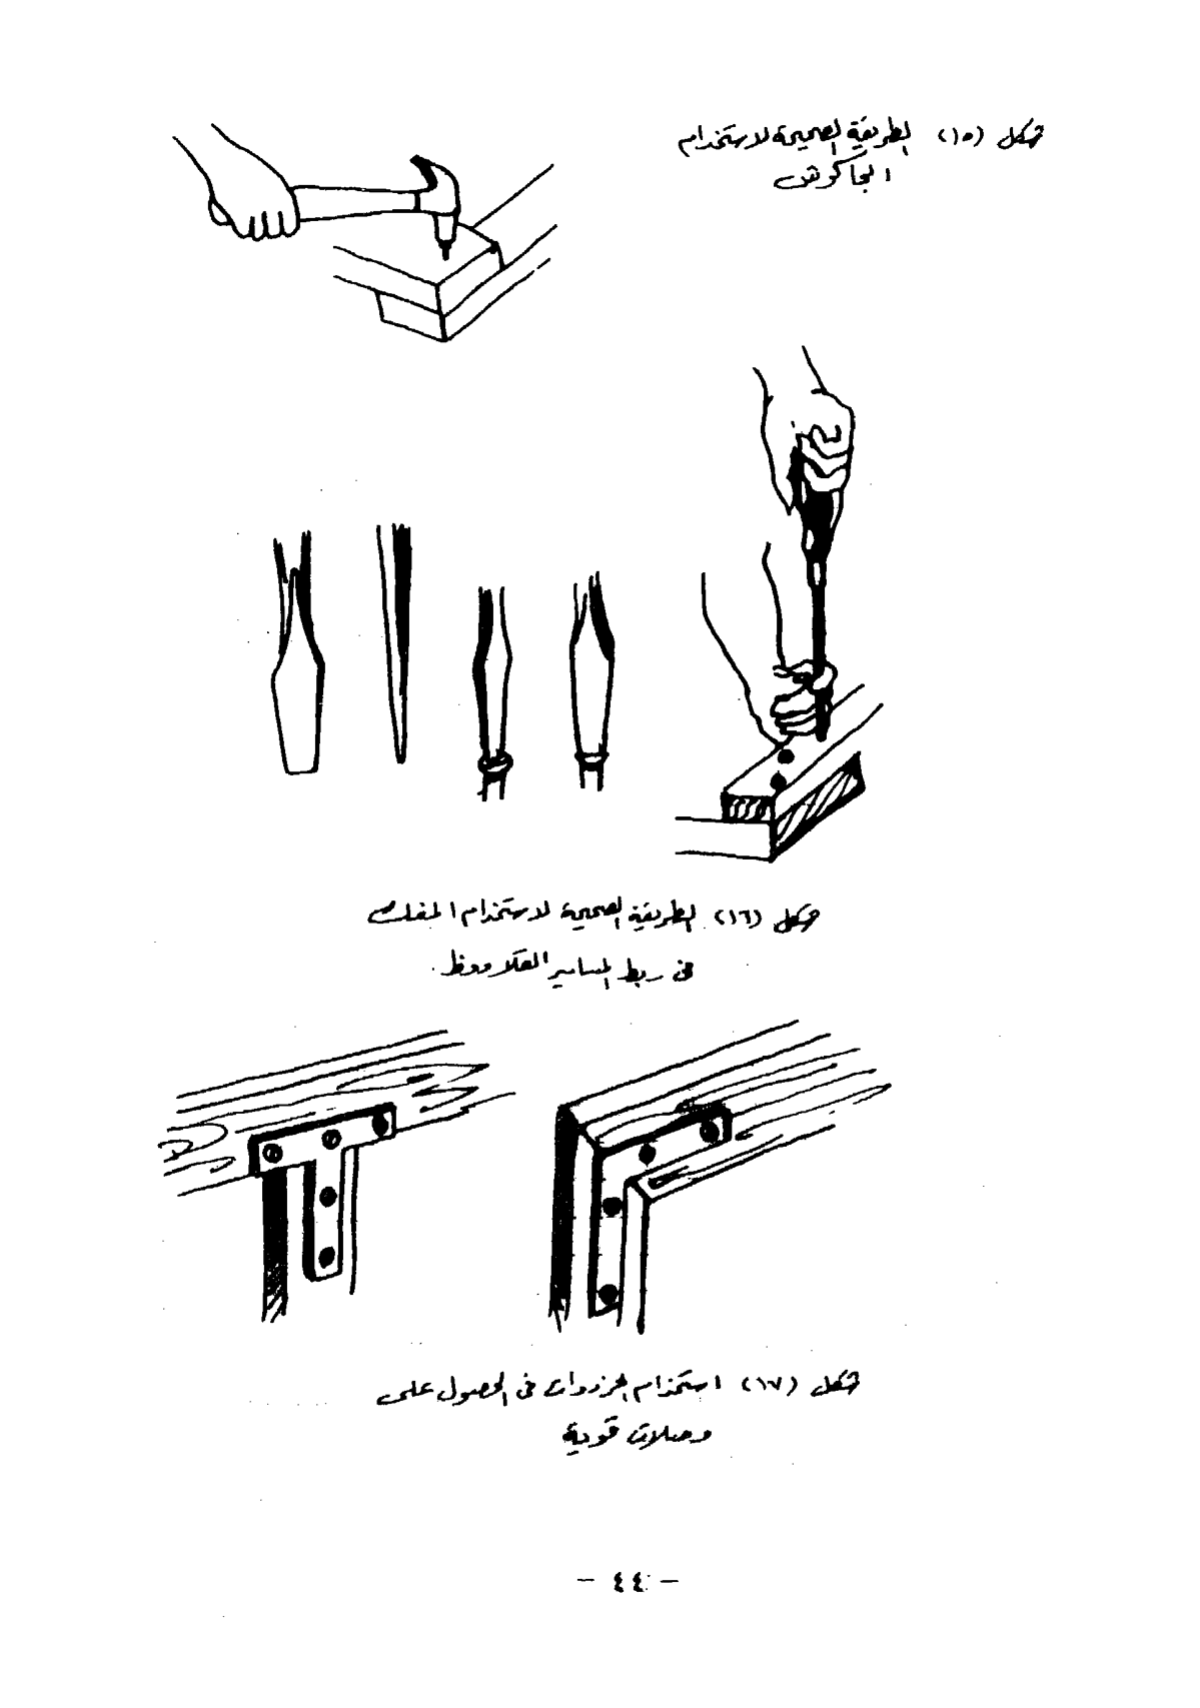 شكل (١٥) الطريقة الصحيحة لاستخدام
الجاكوش
شكل (١٦) الطريقة الصحيحة لاستخدام المفك
فى ربط المسامير القلاووظ.
شكل (١٧) استخدام الخردوات فى الحصول على
وصلات قوية
- ٤٤ -